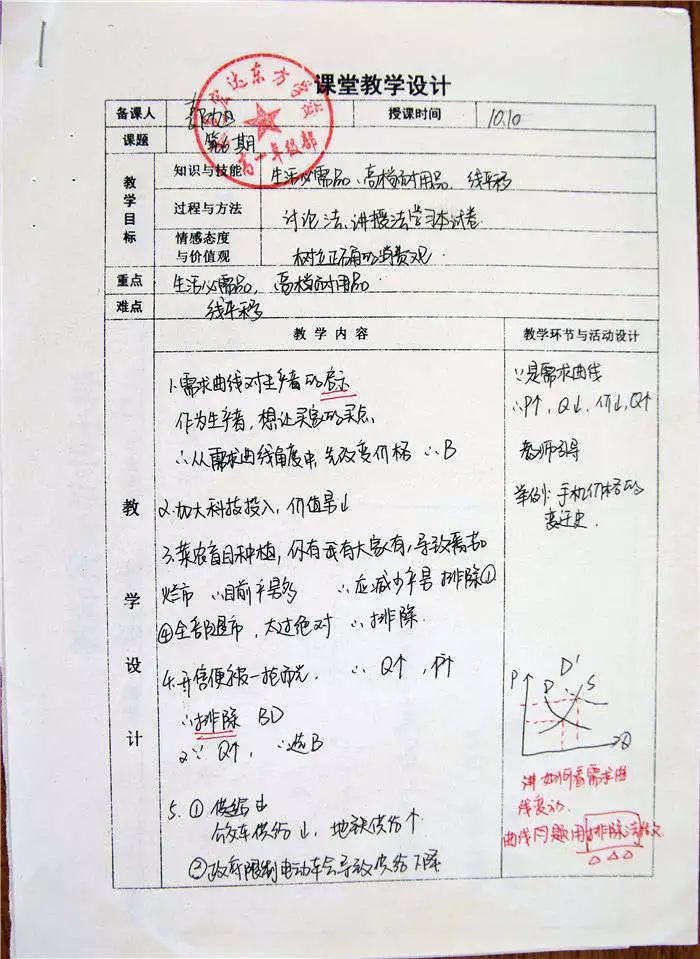 课堂教学设计
备课人
授课时间 10.10
课题 第6期
高一年级部
教学目标
知识与技能 生活必需品、高档耐用品、线平移
过程与方法 讨论法、讲授法学习本试卷.
情感态度与价值观 树立正确的消费观.
重点 生活必需品,高档耐用品.
难点 线平移
教学设计
教学内容
教学环节与活动设计
1.需求曲线对生产者的启示
作为生产者,想让买家的买点.
∴从需求曲线角度中,先改变价格 ∴B
2.加大科技投入,价值量↓
3.菜农盲目种植,你有我有大家有,导致
烂市 ∴目前产量多 ∴应减少产量 排除①
④全部退市,太过绝对 ∴排除.
∴ Q↑,
∴排除 BD
∵ Q↑, ∴选B
5.① 供给↓
供给↓,地铁供给↑
②政府限制电动车会导致供给下降
∵是需求曲线
∴P↑,Q↓,价↓,Q↑
教师引导
举例:手机价格的
变迁史.
P D D' S Q
讲如何看需求曲
线变动.
曲线问题用排除法